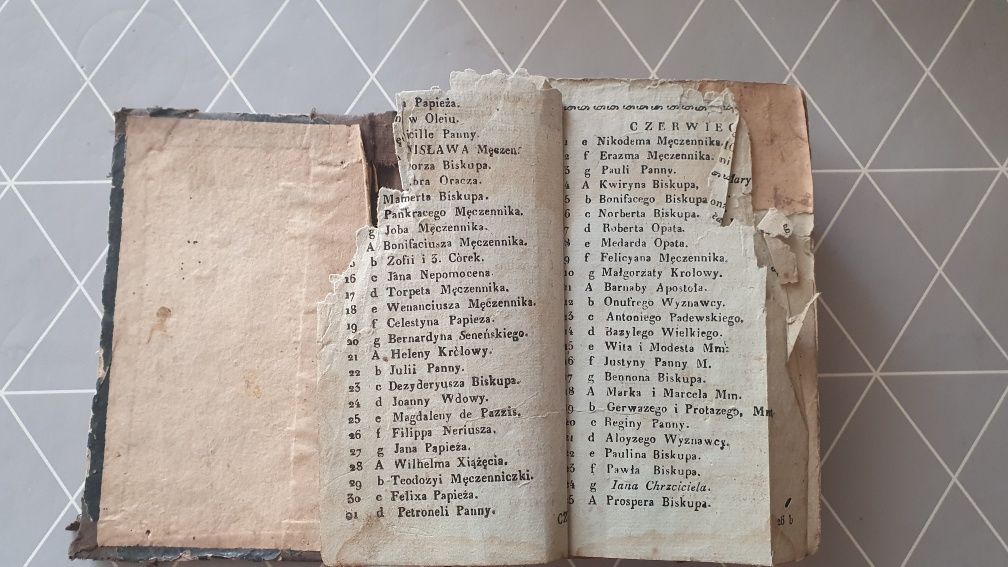 Papieża.
w Oleiu.
Panny.
NISŁAWA Męczen:
orza Biskupa.
bra Oracza.
Mamerta Biskupa.
Pankracego Męczennika.
g Joba Męczennika.
A Bonifaciusza Męczennika.
b Zofii i 3. Córek.
16 c Jana Nepomocena.
17 d Torpeta Męczennika.
18 e Wenanciusza Męczennika.
19 f Celestyna Papieza.
20 g Bernardyna Seneńskiego.
21 A Heleny Królowy.
22 b Julii Panny.
23 c Dezyderyusza Biskupa.
24 d Joanny Wdowy.
25 e Magdaleny de Pazzis.
26 f Filippa Neriusza.
27 g Jana Papieża.
28 A Wilhelma Xiążęcia.
29 b Teodozyi Męczenniczki.
30 c Felixa Papieża.
31 d Petroneli Panny.
CZ
CZERWIEC
1 e Nikodema Męczennika.
2 f Erazma Męczennika.
3 g Pauli Panny.
4 A Kwiryna Biskupa,
5 b Bonifacego Biskupa
6 c Norberta Biskupa.
7 d Roberta Opata.
8 e Medarda Opata.
9 f Felicyana Męczennika.
10 g Małgorzaty Krolowy.
11 A Barnaby Apostoła.
12 b Onufrego Wyznawcy.
13 c Antoniego Padewskiego.
14 d Bazylego Wielkiego.
15 e Wita i Modesta Mm:
16 f Justyny Panny M.
17 g Bennona Biskupa.
18 A Marka i Marcela Mm.
19 b Gerwazego i Protazego, Mm
20 c Reginy Panny.
21 d Aloyzego Wyznawcy.
22 e Paulina Biskupa.
23 f Pawła Biskupa.
24 g Iana Chrzciciela.
25 A Prospera Biskupa.
Mary
26 b